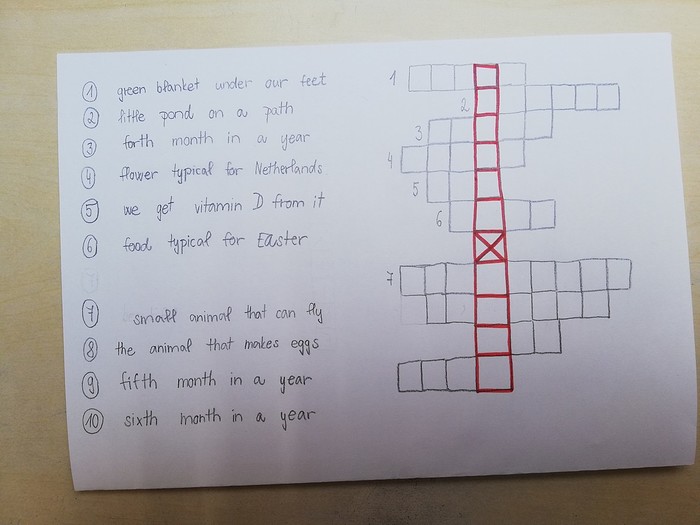 1 green blanket under our feet
2 little pond on a path
3 forth month in a year
4 flower typical for Netherlands
5 we get vitamin D from it
6 food typical for Easter
7 small animal that can fly
8 the animal that makes eggs
9 fifth month in a year
10 sixth month in a year
1
2
3
4
5
6
7